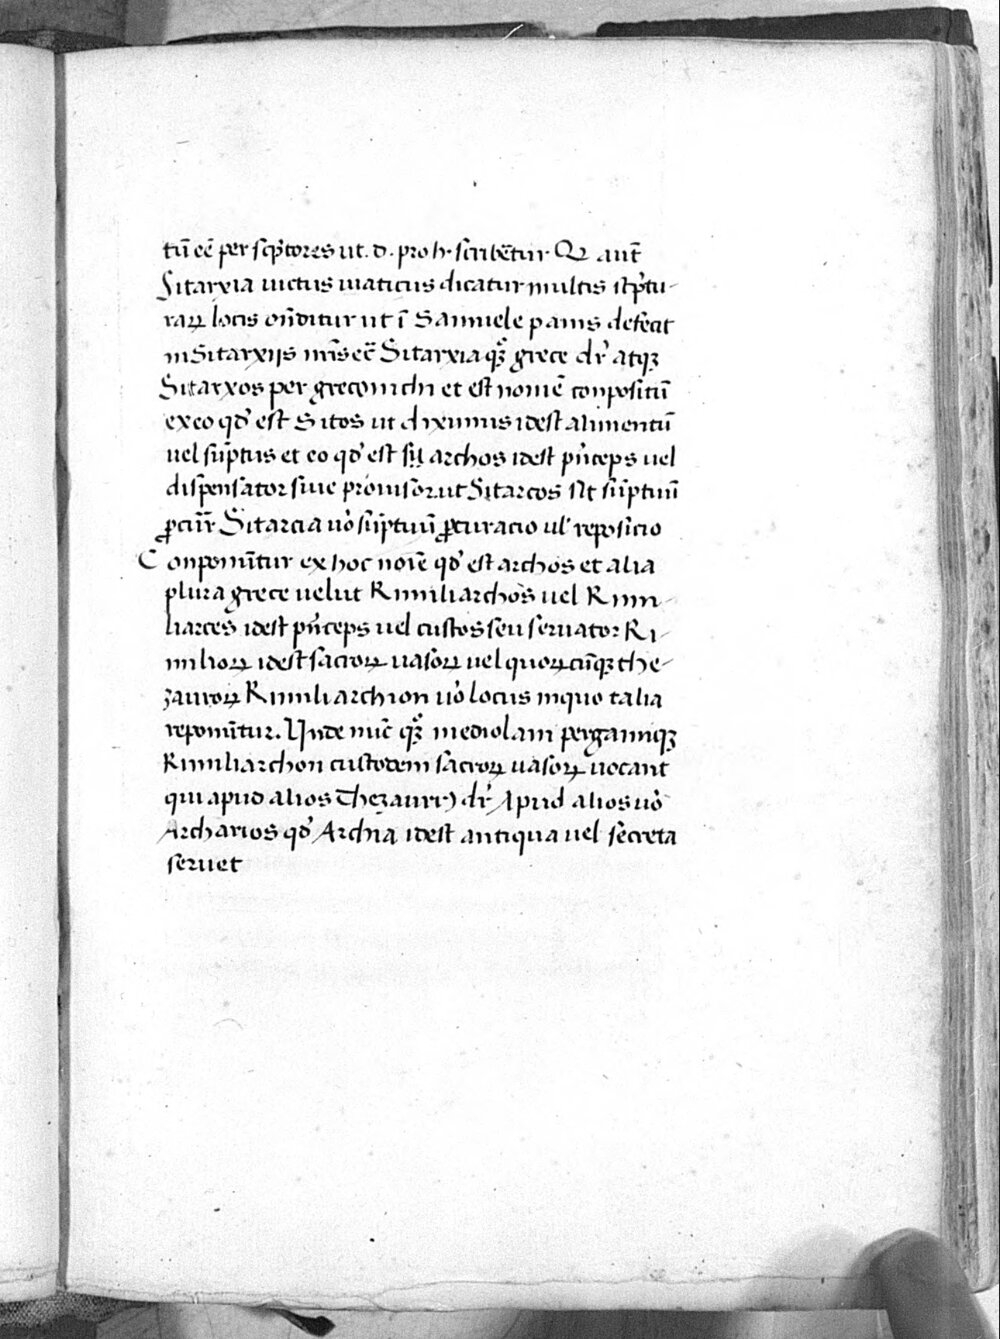 tū eē per sc͛ptores ut .d. pro h scribētur Q aut̄
Sitarxia uictus uiaticus dicatur multis sc͛ptu-
raꝝ locis on̄ditur ut ī Samuele panis defecit
in Sitarxiis nr̄is eē Sitarxia qꝫ grece dr̄ atqꝫ
Sitarxos per grecom chi et est nomē conpositū
ex eo qd̓ est Sitos ut diximus idest alimentū
uel sūptus et eo qd̓ est archos idest p̄nceps uel
dispensator siue prouisor ut Sitarcos sit sūptuū
ꝓcur̄ Sitarcia uo̓ sūptuū ꝓcuracio ul̓ repositio
Conponūtur ex hoc noīe qd̓ est archos et alia
plura grece uelut Kimiliarchos uel Kimi-
liarces idest p̄nceps uel custos seu seruator Ki-
milioꝝ idest sacroꝝ uasoꝝ uel quoꝝcūqꝫ the-
zauroꝝ Kimiliarchion uo̓ locus in quo talia
reponūtur. Unde nūc qꝫ mediolani pergamiqꝫ
Kimiliarchon custodem sacroꝝ uasoꝝ uocant
qui apud alios Thezaurꝝ dr̄ Apud alios uo̓
Archarios qd̓ Archia idest antiqua uel secreta
seruet